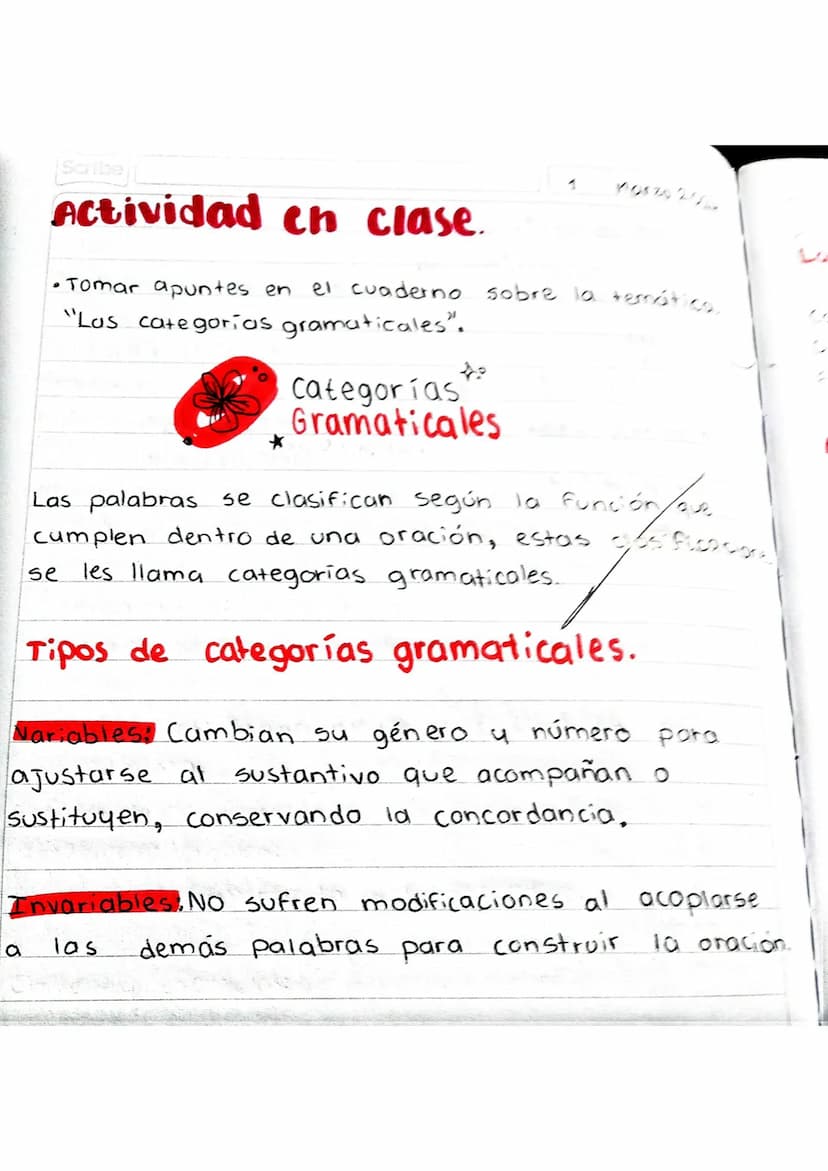 Scribe
1 Marzo
Actividad en clase.
• Tomar apuntes en el cuaderno sobre la temática
"Las categorías gramaticales".
Categorías
Gramaticales
Las palabras se clasifican según la función que
cumplen dentro de una oración, estas
se les llama categorías gramaticales.
Tipos de categorías gramaticales.
Variables: Cambian su género y número para
ajustarse al sustantivo que acompañan o
sustituyen, conservando la concordancia.
Invariables: No sufren modificaciones al acoplarse
a las demás palabras para construir la oración.